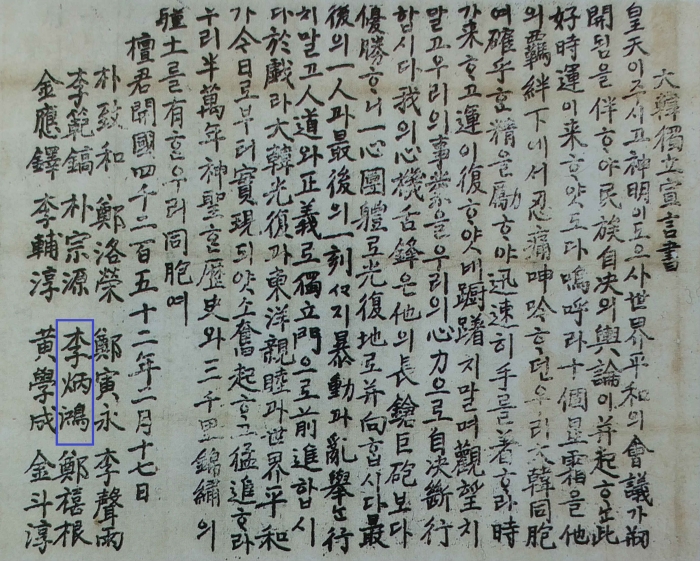 大韓獨立宣言書
皇天이주시고神明이도으사世界平和의會議가刱
開됨을伴ᄒᆞ야民族自決의輿論이并起ᄒᆞ는此
好時運이来ᄒᆞ얏도다嗚呼라十個星霜을他
의羈絆下에서忍痛呻吟ᄒᆞ던우리大韓同胞
여確乎ᄒᆞᆫ精을勵ᄒᆞ야迅速히手를着ᄒᆞ라時
가来ᄒᆞ고運이復ᄒᆞ얏네躕躇치말며觀望치
말고우리의事業을우리의心力으로自决斷行
합시다我의心機舌鋒은他의長鎗巨砲보다
優勝ᄒᆞ니一心團體로光復地로并向합시다最
後의一人과最後의一刻ᄭᆞ지暴動과亂擧는行
치말고人道와正義로獨立門으로前進합시
다於戲라大韓光復과東洋親睦과世界平和
가今日로부터實現되얏소奮起ᄒᆞ고猛進ᄒᆞ라
우리半萬年神聖ᄒᆞᆫ歷史와三千里錦繡의
疆土를有ᄒᆞᆫ우리同胞여
檀君開國四千二百五十二年二月十七日
朴致和 鄭洛榮 鄭寅永 李聲雨
李範鎬 朴宗源 李炳鴻 鄭禧根
金應鐸 李輔淳 黃學成 金斗淳